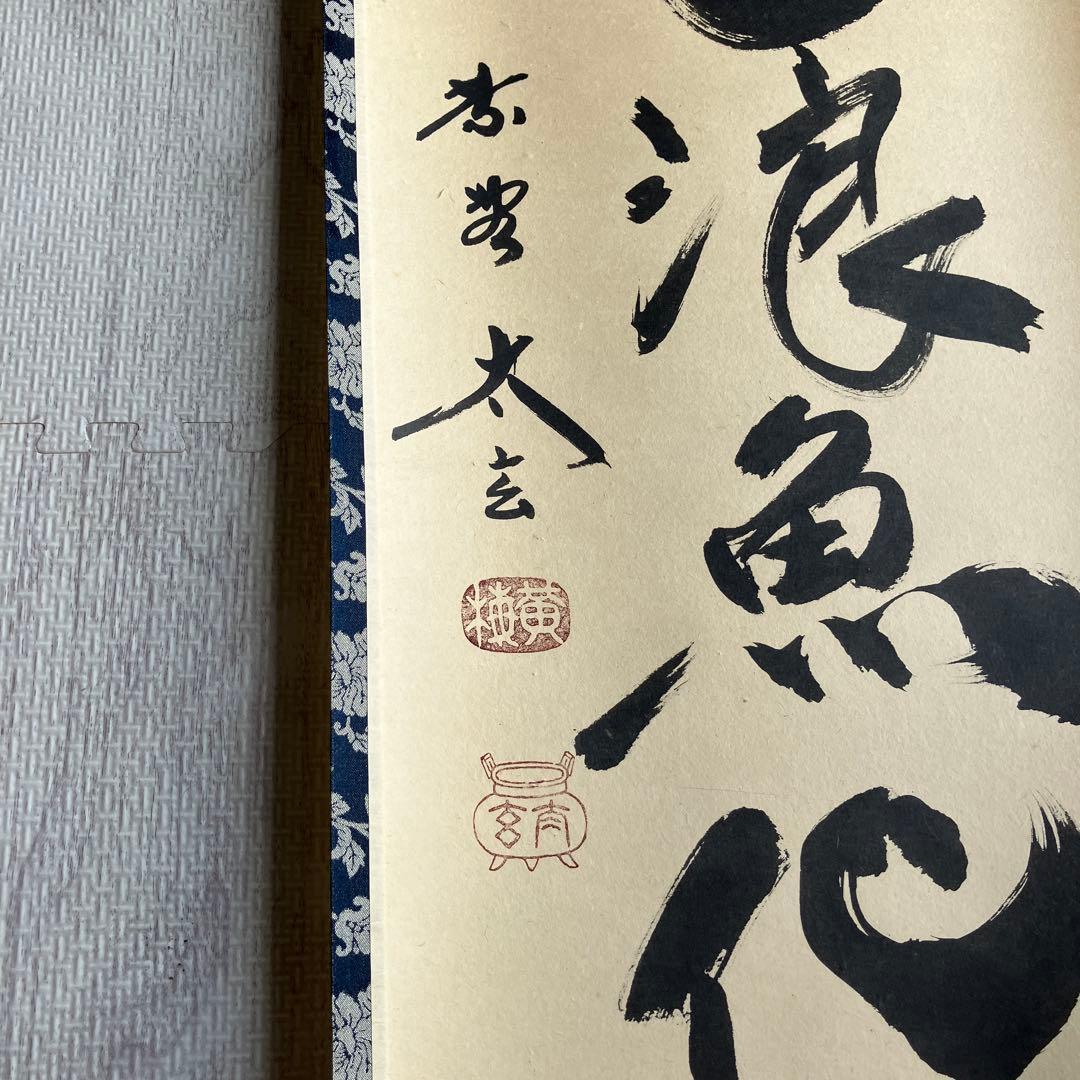 浪魚化
紫野 太玄
黄梅
太玄